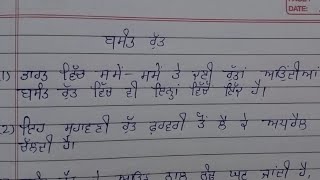 DATE:
ਬਸੰਤ ਰੁੱਤ
1) ਭਾਰਤ ਵਿੱਚ ਸਮੇਂ-ਸਮੇਂ ਤੇ ਕਈ ਰੁੱਤਾਂ ਆਉਂਦੀਆਂ
ਬਸੰਤ ਰੁੱਤ ਵਿੱਚ ਵੀ ਇਨ੍ਹਾਂ ਵਿੱਚੋਂ ਇੱਕ ਹੈ।
(2) ਇਹ ਸੁਹਾਵਣੀ ਰੁੱਤ ਫ਼ਰਵਰੀ ਤੋਂ ਲੈ ਕੇ ਅਪਰੈਲ
ਚੱਲਦੀ ਹੈ।